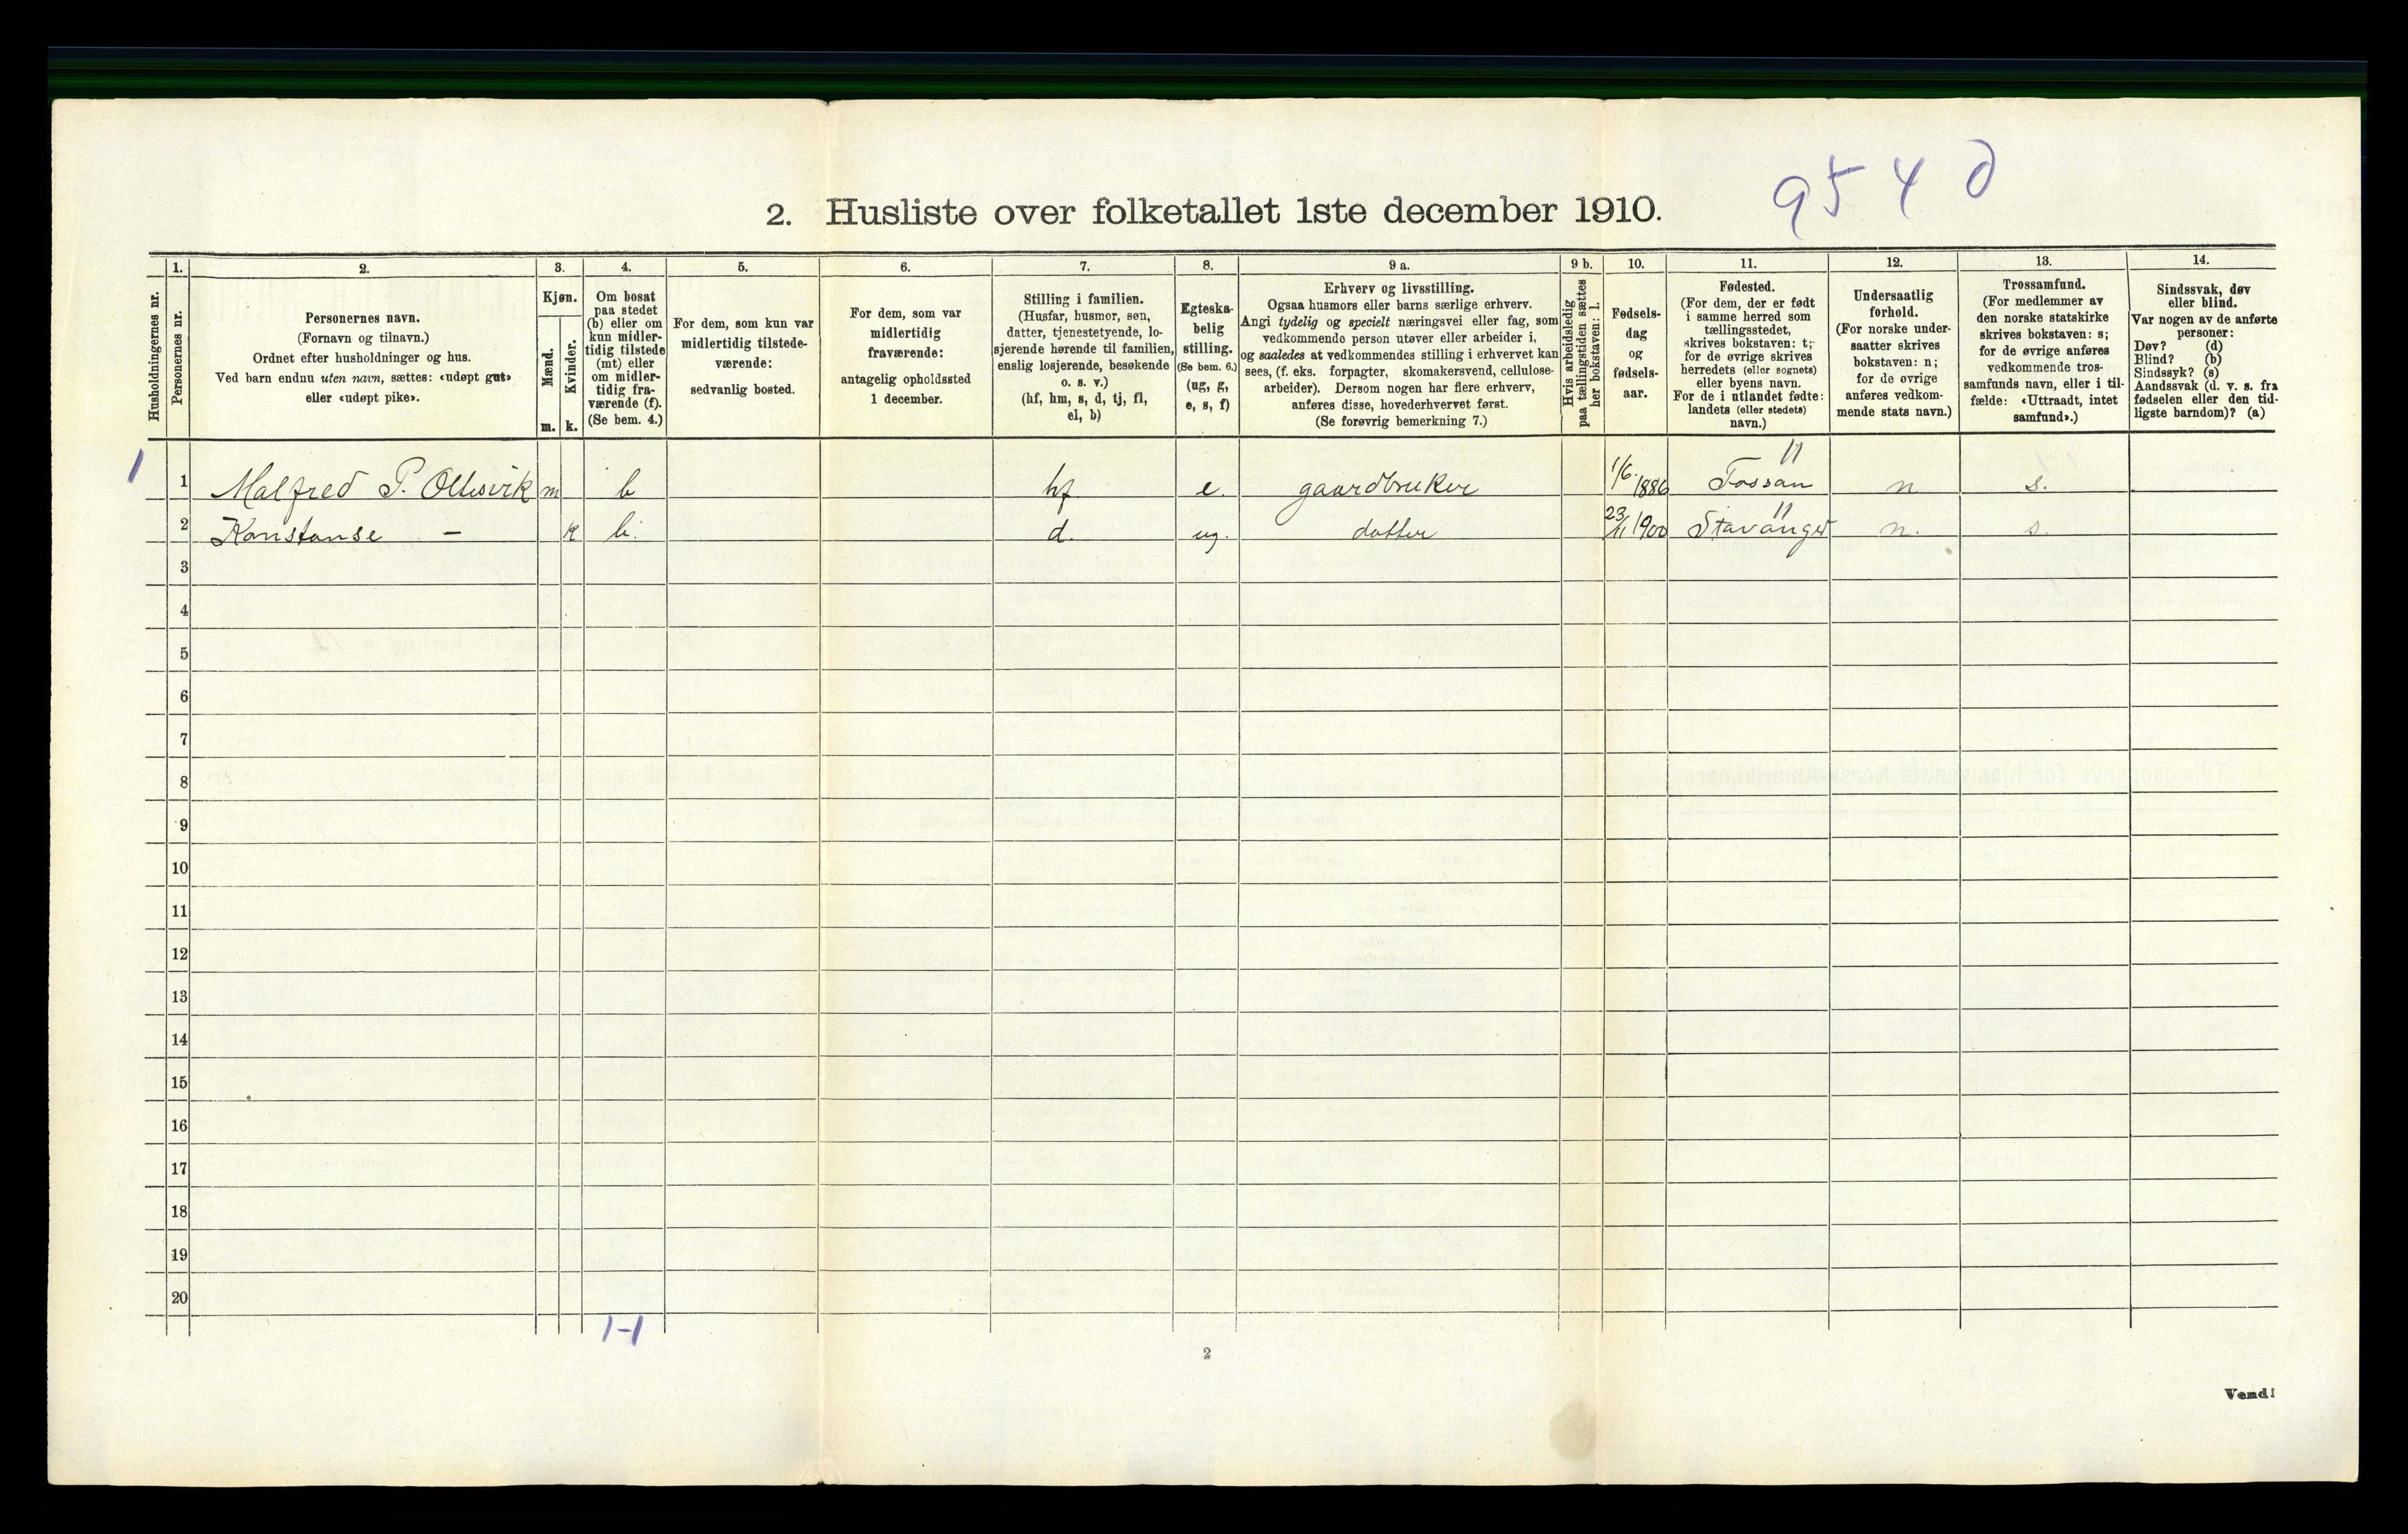 9540
2. Husliste over folketallet 1ste december 1910.
Husholdningernes nr.
1.
Personernes nr.
2.
Personernes navn.
(Fornavn og tilnavn.)
Ordnet efter husholdninger og hus.
Ved barn endnu uten navn, sættes: «udøpt gut»
eller «udøpt pike».
3.
Kjøn.
Mænd.
m.
Kvinder.
k.
4.
Om bosat
paa stedet
(b) eller om
kun midler-
tidig tilstede
(mt) eller
om midler-
tidig fra-
værende (f).
(Se bem. 4.)
5.
For dem, som kun var
midlertidig tilstede-
værende:
sedvanlig bosted.
6.
For dem, som var
midlertidig
fraværende:
antagelig opholdssted
1 december.
7.
Stilling i familien.
(Husfar, husmor, søn,
datter, tjenestetyende, lo-
sjerende hørende til familien,
enslig losjerende, besøkende
o. s. v.)
(hf, hm, s, d, tj, fl,
el, b)
8.
Egteska-
belig
stilling.
(Se bem. 6.)
(ug, g,
e, s, f)
9 a.
Erhverv og livsstilling.
Ogsaa husmors eller barns særlige erhverv.
Angi tydelig og specielt næringsvei eller fag, som
vedkommende person utøver eller arbeider i,
og saaledes at vedkommendes stilling i erhvervet kan
sees, (f. eks. forpagter, skomakersvend, cellulose-
arbeider). Dersom nogen har flere erhverv,
anføres disse, hovederhvervet først.
(Se forøvrig bemerkning 7.)
9 b.
Hvis arbeidsledig
paa tællingstiden sættes
her bokstaven: l.
10.
Fødsels-
dag
og
fødsels-
aar.
11.
Fødested.
(For dem, der er født
i samme herred som
tællingsstedet,
skrives bokstaven: t;
for de øvrige skrives
herredets (eller sognets)
eller byens navn.
For de i utlandet fødte:
landets (eller stedets)
navn.)
12.
Undersaatlig
forhold.
(For norske under-
saatter skrives
bokstaven: n;
for de øvrige
anføres vedkom-
mende stats navn.)
13.
Trossamfund.
(For medlemmer av
den norske statskirke
skrives bokstaven: s;
for de øvrige anføres
vedkommende tros-
samfunds navn, eller i til-
fælde: «Uttraadt, intet
samfund».)
14.
Sindssvak, døv
eller blind.
Var nogen av de anførte
personer:
Døv? (d)
Blind? (b)
Sindssyk? (s)
Aandssvak (d. v. s. fra
fødselen eller den tid-
ligste barndom)? (a)
1 1 Malfred P. m b hf e. gaardbruker 1/6. 1886 11 Fossan n s.
2 Konstanse — k b. d. ug. datter 23/11 1900 11 Stavanger n. s.
3
4
5
6
7
8
9
10
11
12
13
14
15
16
17
18
19
20
1-1
2
Vend!